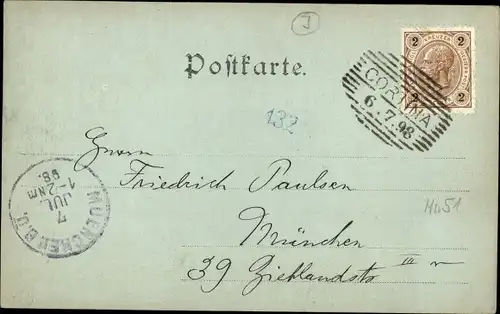 J
2 KREUZER 2
2 2
Postkarte.
CORTINA
6.7.98
132
Herrn
Friedrich Paulsen
MUENCHEN B.U.
7
JUL
1-2NM
98.
Hu51
München
39 Zieblandstr III r